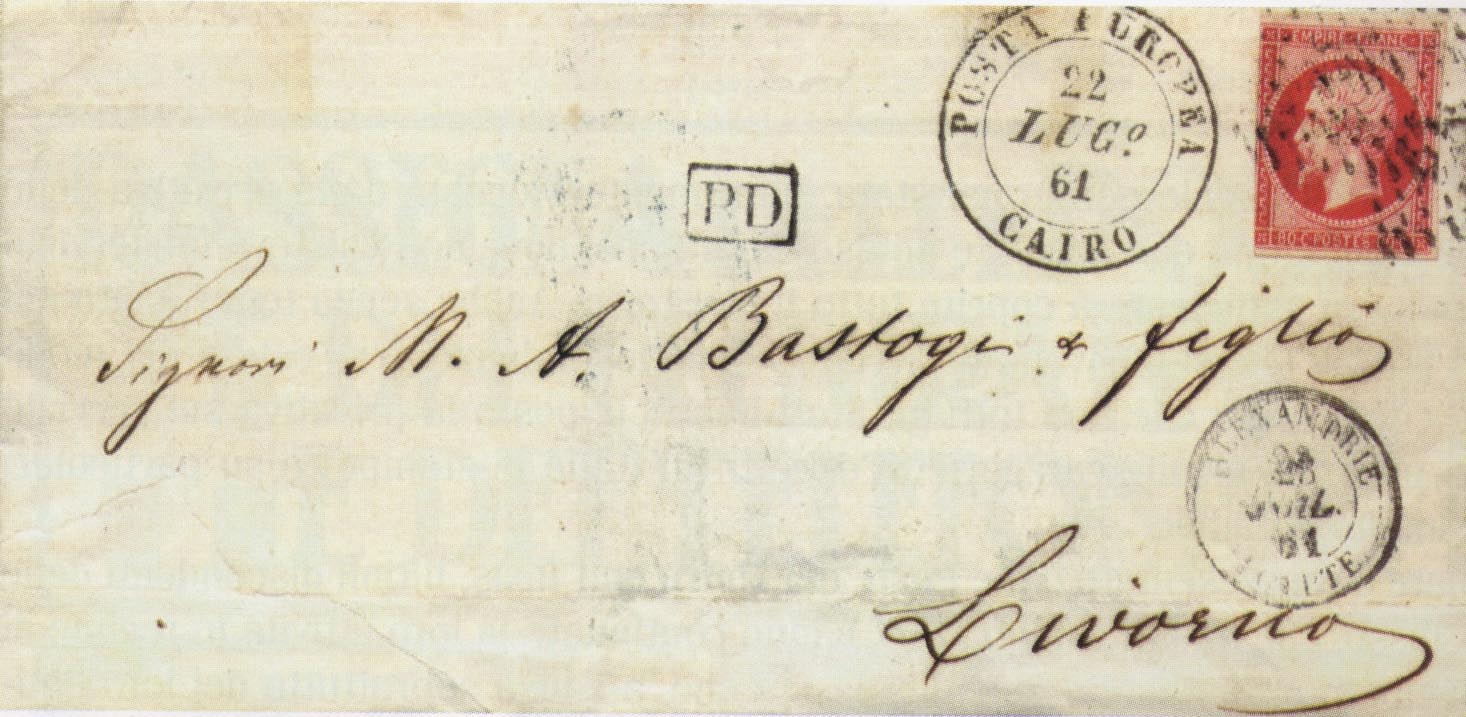 POSTA EUROPEA
22
LUGº
61
CAIRO
EMPIRE FRANC
80 C POSTES 80 C
PD
Signori M. A. Bastogi & figlio
ALEXANDRIE
JUIL.
61
EGYPTE
Livorno